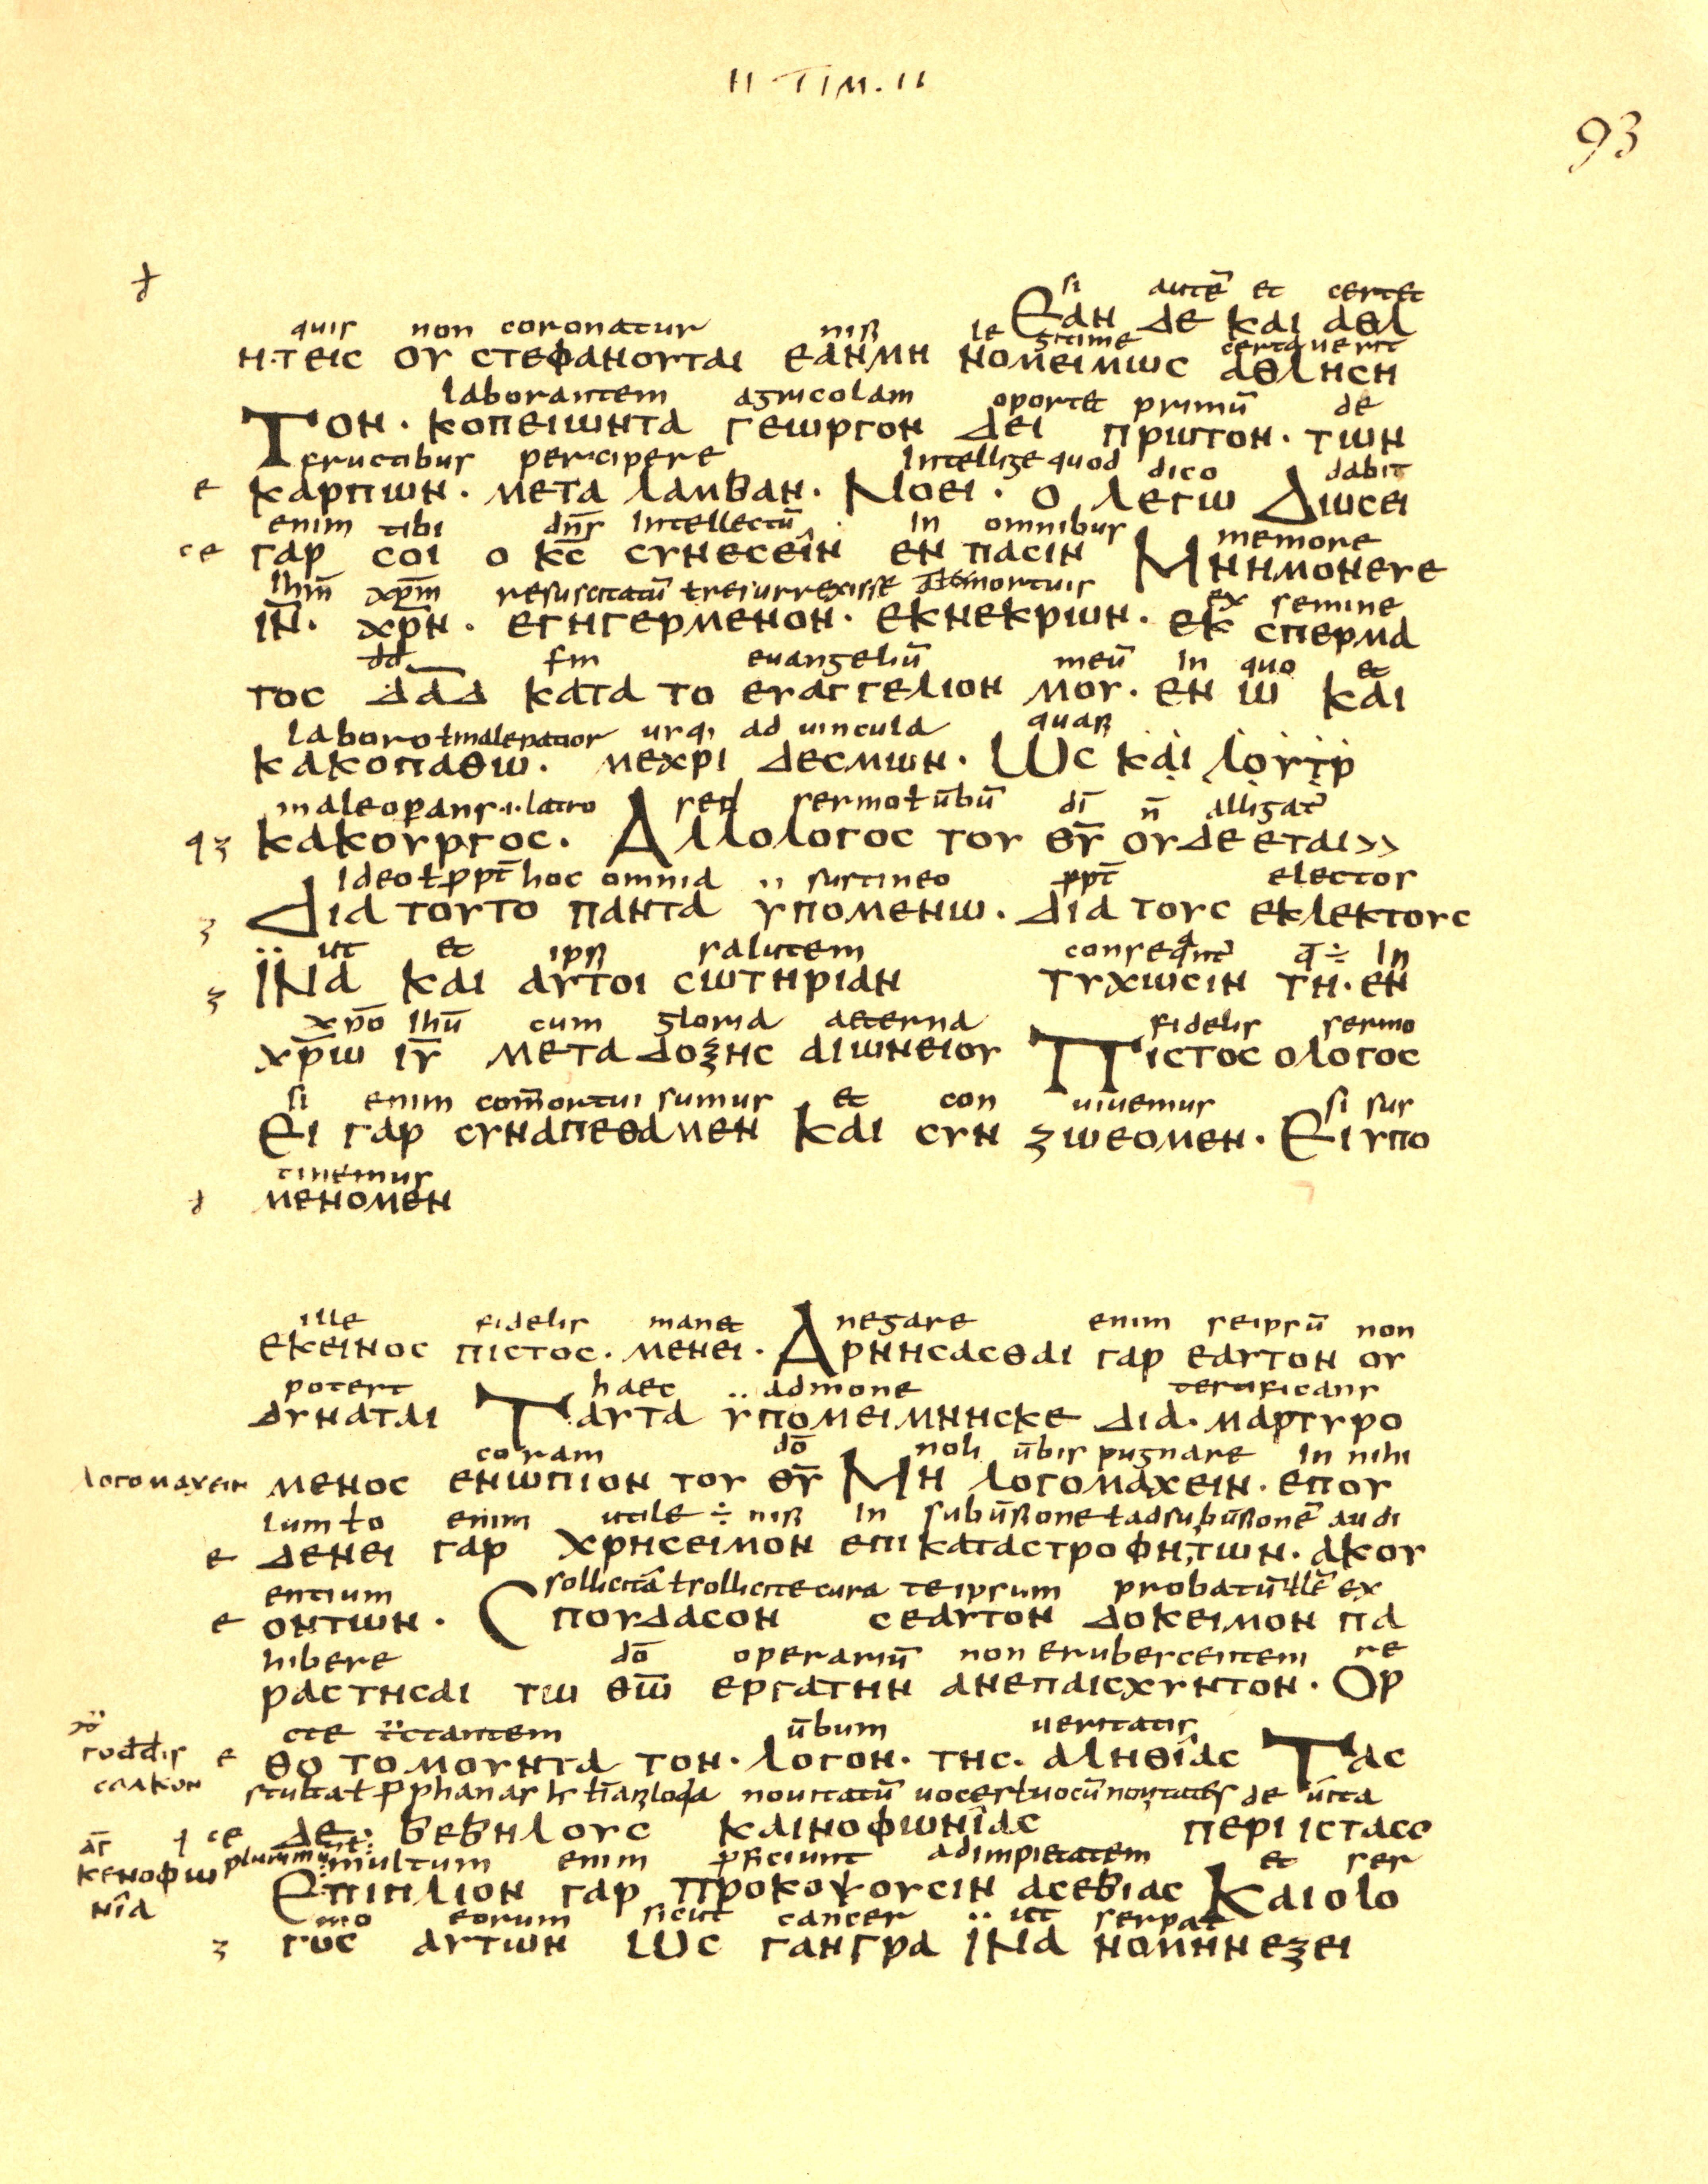 II TIM. II
93
si autē et certet
Εαν δε και αθλ
quis non coronatur nisi legitime certaverit
η·τεις ου στεφανουται εανμη νομειμως αθληση
laborantem agricolam oportet primū de
Τον · κοπειωντα γεωργον δει πρωτον · των
fructibus percipere Intellige quod dico dabit
ε καρπων · μετα λαμβαν · Νοει · ο λεγω Δωσει
enim tibi dn̄s Intellectū In omnibus memore
ce γαρ σοι ο κ̄ς συνεσεῖν εν πασιν Μνημονευε
Ihm̄ xp̄m resuscitatū ł resurrexisse mortuis ex semine
ῑν̄ · χρ̄ν · εγηγερμενον · εκνεκρων · εκ σπερμα
dd fm evangeliū meū In quo et
τος δᾱδ κατα το ευαγγελιον μου · εν ω και
laboro ł malepatior usq; ad vincula quasi
κακοπαθω · μεχρι δεσμων · Ως και λουτρ
maleoperans ·i· latro sed sermo ł ūbū dī n̄ alligat̄
κακουργος · Αλλολογος του θ̄ῡ ουδε εται>>
Ideo ł ppt̄ hoc omnia sustineo ppt̄ electos
ʒ Δια τουτο παντα υπομενω · δια τους εκλεκτους
ut et ipsi salutem conseqant̄ q̄ ÷ In
ʒ ϊΝα και αυτοι σωτηριαν τυχωσιν τη · εν
xp̄o Ihū cum gloria aeterna fidelis sermo
χρ̄ω ιῡ μετα δοξης αιωνειου Πιστος ολογος
si enim com̄ortui sumus et con vivemus si sus
Ει γαρ συναπεθαμεν και συν ζωεομεν · Ει υπο
tinemus
μενομεν
ille fidelis manet negare enim seipsū non
εκεινος πιστος · μενει · Αρνησασθαι γαρ εαυτον ου
potest haec admone testificans
δυναται Ταυτα υπομειμνησκε δια · μαρτυρο
coram dō noli ūbis pugnare In nihi
λογομαχειν μενος ενωπιον του θ̄ῡ Μη λογομαχειν · επου
lum ł o enim utile ÷ nisi In subūsione ł adsubūsionē audi
ε δενει γαρ χρησειμον επι καταστροφη,των · ακου
entium sollicitā ł sollicite cura teipsum probatū ex
ε οντων · Σπουδασον σεαυτον δοκειμον πα
hibere dō operariū non erubescentem re
ραστησαι τω θω̄ εργατην ανεπαισχυντον · Ορ
cte tractantem ūbum veritatis
ε θο τομουντα τον · λογον · της · αληθῖας Τας
stulta ł pphanas novitatū voces ł vocū novitates de vita
ce δε · βεβηλους καινοφωνῖας περι ιστασο
plurimū multum enim pficiunt adimpietatem et ser
κενοφω Επιπλιον γαρ προκοψουσιν ασεβιας Καιολο
νῖα
mo eorum sicut cancer ut serpat
ʒ γος αυτων Ως γανγρα ϊΝα νομηνεξει